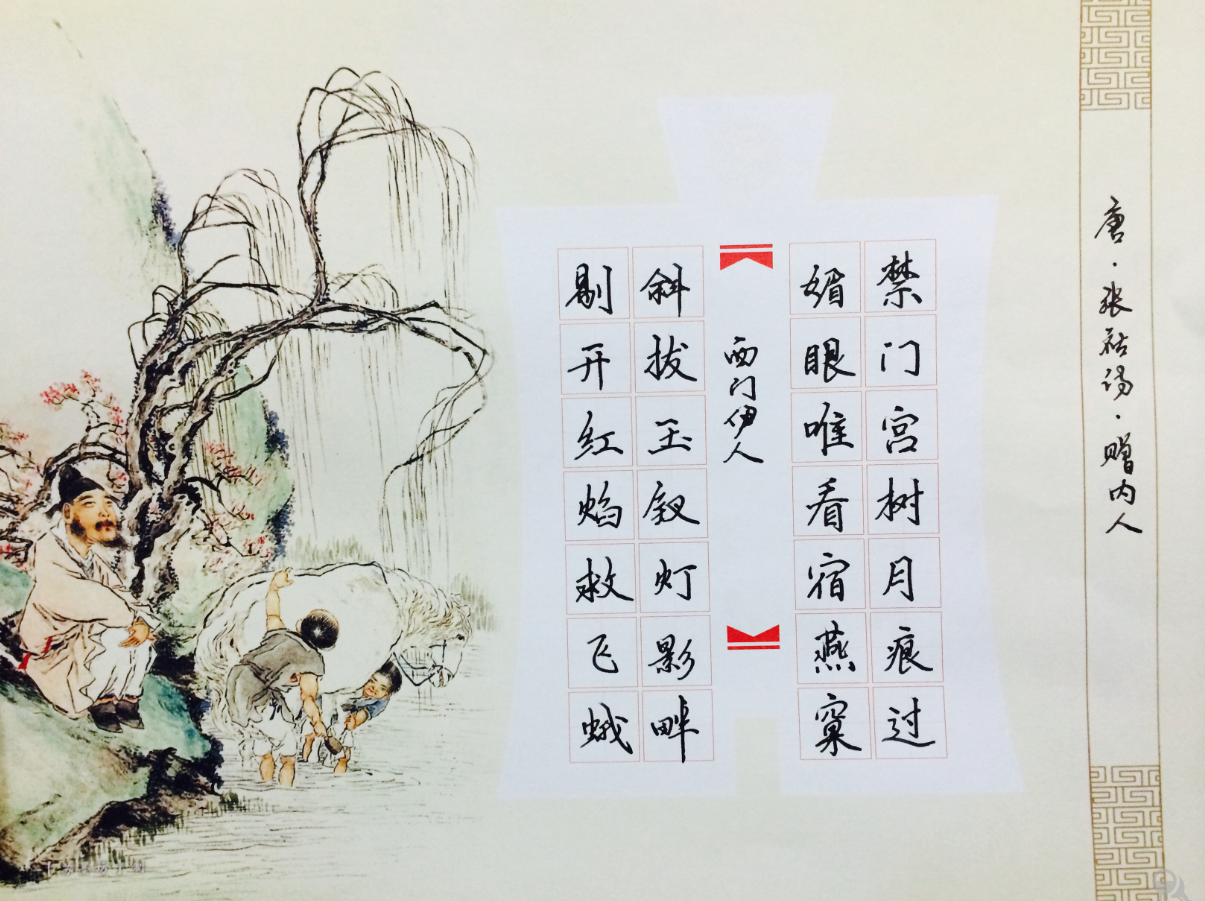 唐·张祜诗·赠内人
禁门宫树月痕过
媚眼唯看宿燕窠
西门伊人
斜拔玉钗灯影畔
剔开红焰救飞蛾